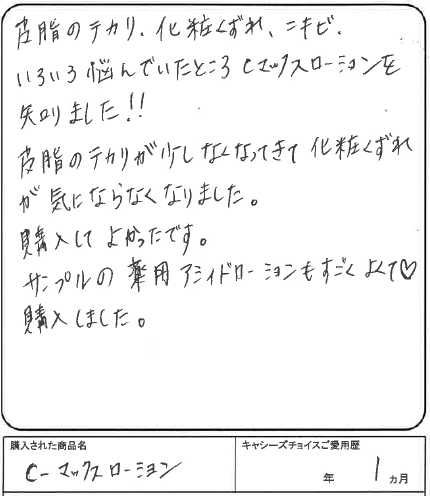 皮脂のテカリ、化粧くずれ、ニキビ、
いろいろ悩んでいたところCマックスローションを
知りました!!
皮脂のテカリが少しなくなってきて化粧くずれ
が気にならなくなりました。
購入してよかったです。
サンプルの薬用アシィドローションもすごくよくて♡
購入しました。
購入された商品名 キャシーズチョイスご愛用歴
C-マックスローション 年 1 ヵ月